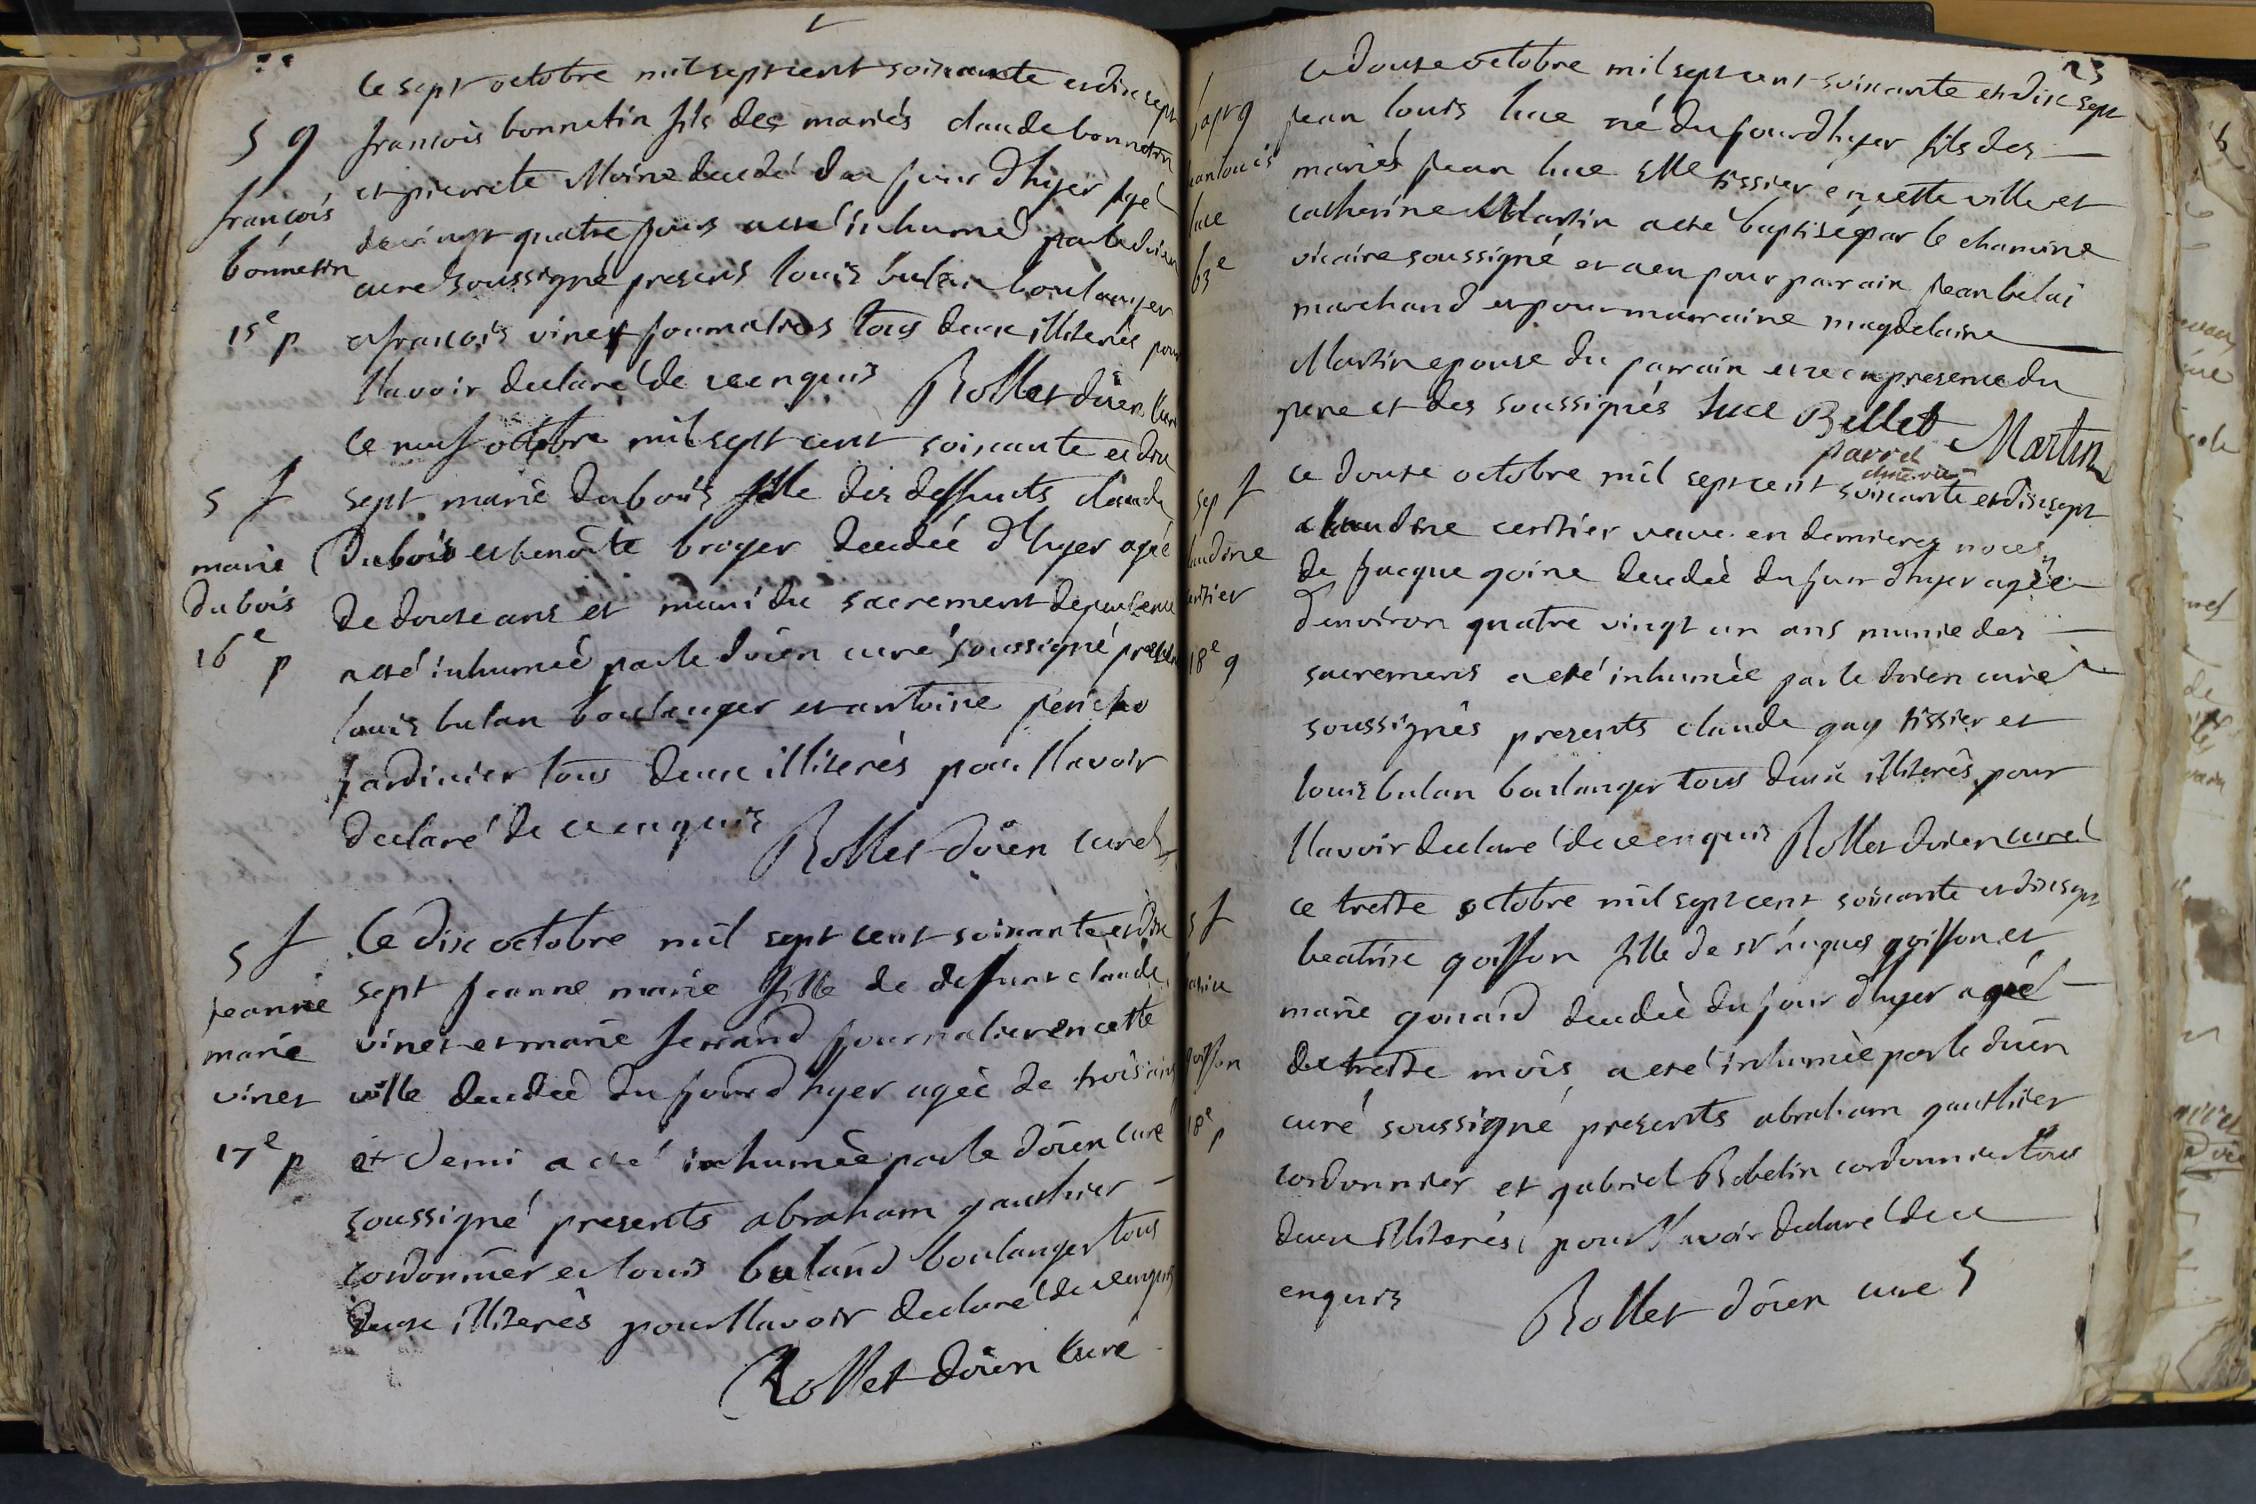 ce sept octobre mil sept cent soixante et dix sept
s g francois bonnetin fils des mariés claude bonnetin
françois
bonnetin
15e p
et pierrete Moine decedé du jour d'hyer agé
de vingt quatre jours a eté inhumé par le doien
curé soussigné presens louis bulan boulanger
et francois vinet journaliers tous deux illiterés pour
l'avoir declaré de ce enquis Rollet doien curé
ce neuf octobre mil sept cent soixante et dix
s f
marie
dubois
16e p
sept marie dubois fille des deffunts claude
dubois et benoite broyer decedée d'hyer agée
de douze ans et muni du sacrement de penitence
a eté inhumée par le doien curé soussigné presens
louis bulan boulanger et antoine
jardinier tous deux illiterés pour l'avoir
declaré de ce enquis Rollet doïen curé
s f
jeanne
marie
vinet
17e p
Ce dix octobre mil sept cent soixante et dix
sept jeanne marie fille de deffunt claude
vinet et marie ferrand journalier en cette
ville decedée du jour d hyer agée de trois ans
et demi a eté inhumée par le doïen curé
soussigné presents abraham gauthier
cordonnier et louis buland boulanger tous
deux illiterés pour l'avoir declaré de ce enquis
Rollet doïen curé
23
ce douze octobre mil sept cent soixante et dix sept
bapt g
jean louis
luce
63e
jean louis luce né du jour d hyer fils des
mariés jean luce Me tissier en cette ville et
catherine Martin a eté baptisé par le chanoine
vicaire soussigné et a eu pour parrain jean belai
marchand et pour marraine magdelaine
Martin epouse du parrain et ce en presence du
pere et des soussignés luce Bellet Martin
ce douze octobre mil sept cent soixante et dix sept
sep f
claudine
18e g
claudine certier veuve en dernieres noces
de jacque goine decedée du jour d hyer agée
d'environ quatre vingt un ans munie des
sacremens a eté inhumée par le doien curé
soussignés presents claude guy tissier et
louis bulan boulanger tous deux illiterés pour
l'avoir declaré de ce enquis Rollet doien curé
ce treize octobre mil sept cent soixante et dix sept
s f
goisson
18e p
beatrix goisson fille de sr goisson et
marie gonard decedée du jour d hyer agée
de treize mois a eté inhumée par le doïen
curé soussigné presents abraham gauthier
cordonnier et gabriel Robelin cordonnier tous
deux illiterés pour l'avoir declaré de ce
enquis Rollet doïen curé